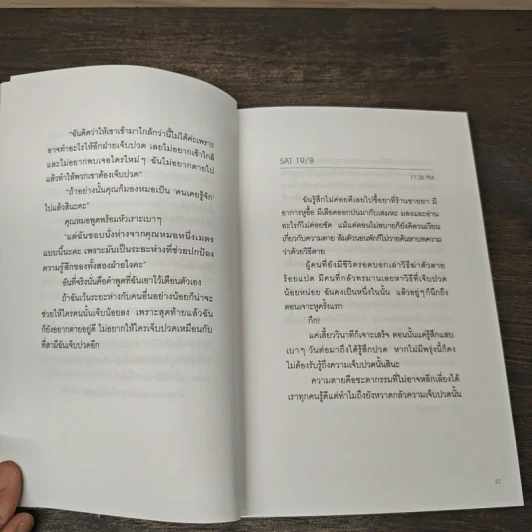 "ฉันคิดว่าให้เขาเข้ามาใกล้กว่านี้ไม่ได้ค่ะเพราะ
อาจทำอะไรให้อีกฝ่ายเจ็บปวด เลยไม่อยากเข้าใกล้
และไม่อยากพบเจอใครใหม่ๆ ฉันไม่อยากตายไป
แล้วทำให้พวกเขาต้องเจ็บปวด"
"ถ้าอย่างนั้นคุณก็มองหมอเป็น 'คนเคยรู้จัก'
ไปแล้วสินะคะ"
คุณหมอพูดพร้อมหัวเราะเบาๆ
"แต่ฉันชอบนั่งห่างจากคุณหมอหนึ่งเมตร
แบบนี้นะคะ เพราะมันเป็นระยะห่างที่ช่วยปกป้อง
ความรู้สึกของทั้งสองฝ่ายไงคะ"
อันที่จริงนั่นคือคำพูดที่ฉันเอาไว้เตือนตัวเอง
ถ้าฉันเว้นระยะห่างกับคนอื่นอย่างน้อยก็น่าจะ
ช่วยให้ใครคนนั้นเจ็บน้อยลง เพราะสุดท้ายแล้วฉัน
ก็ยังอยากตายอยู่ดี ไม่อยากให้ใครเจ็บปวดเหมือนกับ
ที่สามีฉันเจ็บปวดอีก
SAT 19/8
11:36 PM
ฉันรู้สึกไม่ค่อยดีเลยไปซื้อยาที่ร้านขายยา มี
อาการหูอื้อ มีเลือดออกปนมากับเสมหะ มองและอ่าน
อะไรก็ไม่ค่อยชัด แม้แต่ตอนไม่สบายก็ยังคิดวนเวียน
เกี่ยวกับความตาย ล้มตัวนอนพักก็ไม่วายค้นหาบทความ
ว่าด้วยวิธีตาย
ผู้คนที่ยังมีชีวิตรอดบอกเล่าวิธีฆ่าตัวตาย
ร้อยแปด มีคนที่กลัวทรมานเลยหาวิธีที่เจ็บปวด
น้อยหน่อย ฉันคงเป็นหนึ่งในนั้น แล้วอยู่ๆ ก็นึกถึง
ตอนเจาะหูครั้งแรก
กึก!
แค่เสี้ยววินาทีก็เจาะเสร็จ ตอนนั้นแค่รู้สึกแสบ
เบาๆ วันต่อมาถึงได้รู้สึกปวด หากไม่มีพรุ่งนี้ก็คง
ไม่ต้องรับรู้ถึงความเจ็บปวดนั้นสินะ
ความตายคือชะตากรรมที่ไม่อาจหลีกเลี่ยงได้
เราทุกคนรู้ดีแต่ทำไมถึงยังหวาดกลัวความเจ็บปวดนั้น